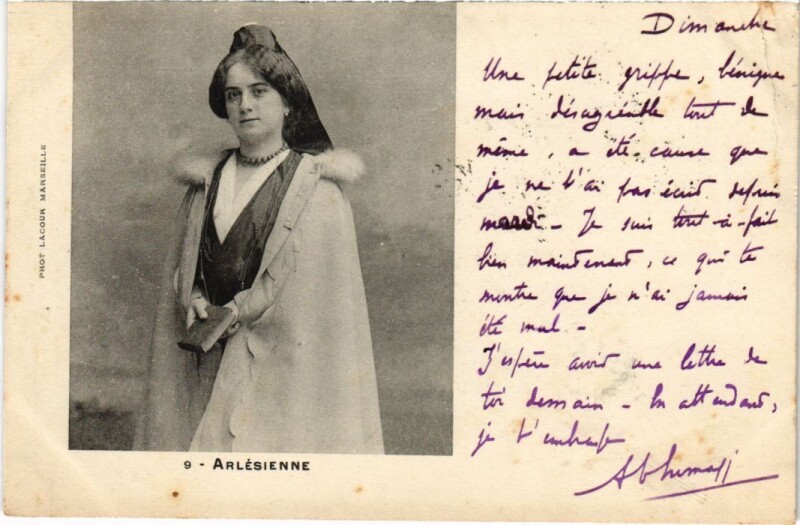 PHOT LACOUR MARSEILLE
9 - ARLÉSIENNE
Dimanche
Une petite grippe, bénigne
mais désagréable tout de
même, a été cause que
je ne t'ai pas écrit depuis
mardi - Je suis tout-à-fait
bien maintenant, ce qui te
montre que je n'ai jamais
été mal -
J'espère avoir une lettre de
toi demain - En attendant,
je t'embrasse